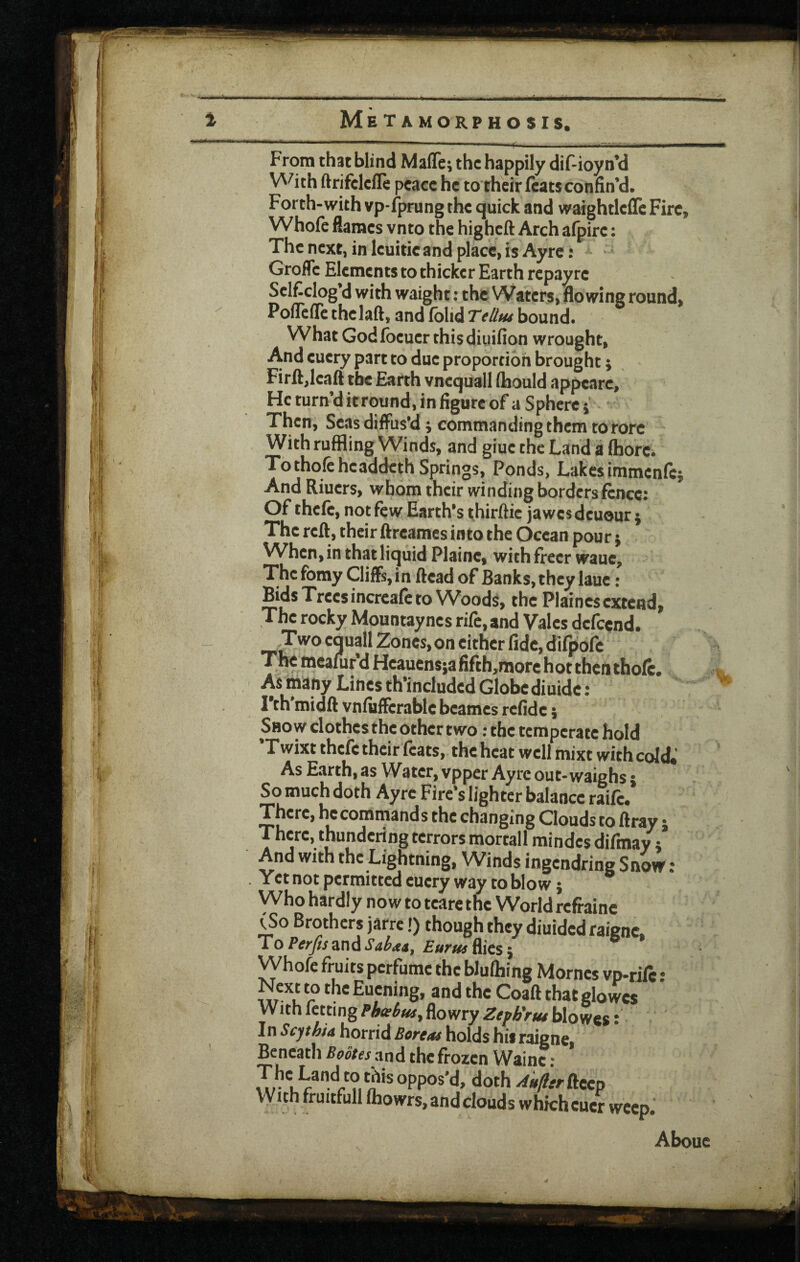 2 METAMORPHOSIS.
From that blind Maſſe; the happily diſ-ioyn'd
With ſtrifeleſſe peace he to their ſeats confin'd.
Forth-with vp-ſprung the quick and waightleſſe Fire,
Whoſe flames vnto the higheſt Arch aſpire:
The next, in leuitie and place, is Ayre:
Groſſe Elements to thicker Earth repayre
Self-clog'd with waight: the Waters, flowing round,
Poſſeſſe the laſt, and ſolid Tellus bound.
What God ſoeuer this diuiſion wrought,
And euery part to due proportion brought;
Firſt, leaſt the Earth vnequall ſhould appeare,
He turn'd it round, in figure of a Sphere;
Then, Seas diffus'd; commanding them to rore
With ruffling Winds, and giue the Land a ſhore.
To thoſe he addeth Springs, Ponds, Lakes immenſe;
And Riuers, whom their winding borders fence:
Of theſe, not few Earth's thirſtie jawes deuour;
The reſt, their ſtreames into the Ocean pour;
When, in that liquid Plaine, with freer waue,
The fomy Cliffs, in ſtead of Banks, they laue:
Bids Trees increaſe to Woods, the Plaines extend,
The rocky Mountaynes riſe, and Vales deſcend.
Two equall Zones, on either ſide, diſpoſe
The meaſur'd Heauens; a fifth, more hot then thoſe.
As many Lines th'included Globe diuide:
I'th'midſt vnſufferable beames reſide;
Snow clothes the other two: the temperate hold
'Twixt theſe their ſeats, the heat well mixt with cold.
As Earth, as Water, vpper Ayre out-waighs;
So much doth Ayre Fire's lighter balance raiſe.
There, he commands the changing Clouds to ſtray;
There, thundering terrors mortall mindes diſmay;
And with the Lightning, Winds ingendring Snow:
Yet not permitted euery way to blow;
Who hardly now to teare the World refraine
(So Brothers jarre!) though they diuided raigne.
To Perſis and Sabæa, Eurus flies;
Whoſe fruits perfume the bluſhing Mornes vp-riſe:
Next to the Euening, and the Coaſt that glowes
With ſetting Phœbus, flowry Zeph'rus blowes:
In Scythia horrid Boreas holds his raigne,
Beneath Boötes and the frozen Waine:
The Land to this oppos'd, doth Auſter ſteep
With fruitfull ſhowrs, and clouds which euer weep.
Aboue